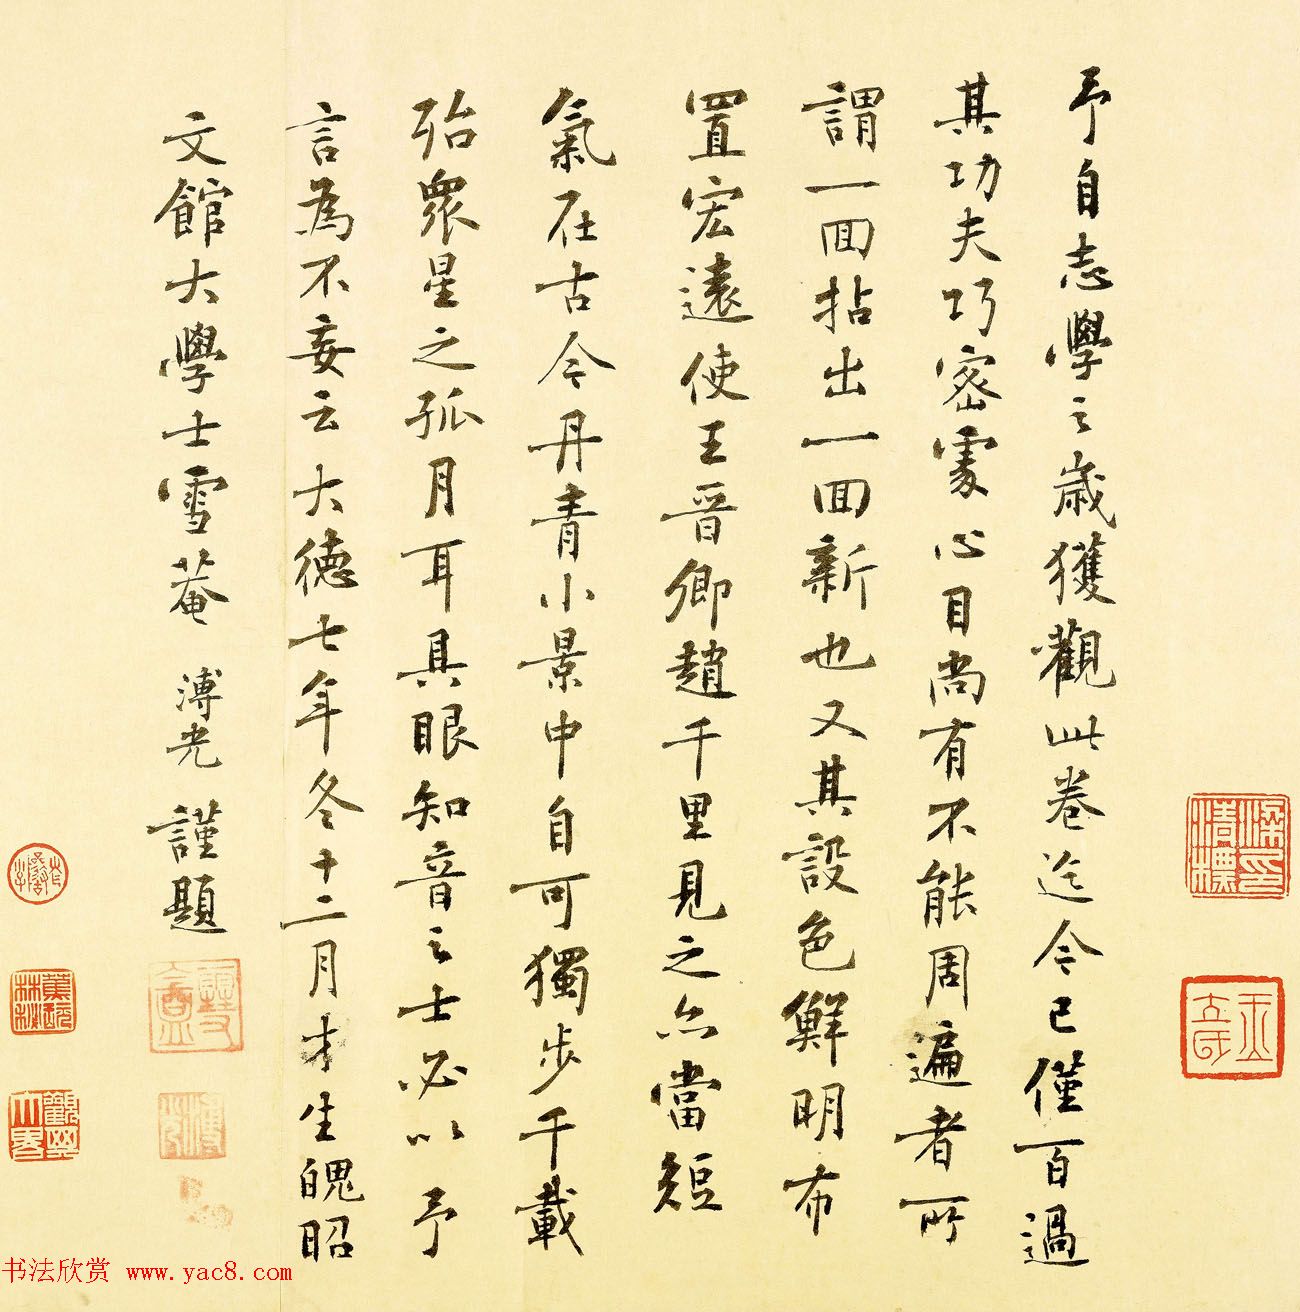 予自志學之歲獲觀此卷迄今已僅百過
其功夫巧密處心目尚有不能周遍者所
謂一回拈出一回新也又其設色鮮明布
置宏遠使王晉卿趙千里見之亦當短
氣在古今丹青小景中自可獨步千載
殆眾星之孤月耳具眼知音之士必以予
言為不妄云大德七年冬十二月才生魄昭
文館大學士雪菴溥光謹題
書法欣赏 www.yac8.com